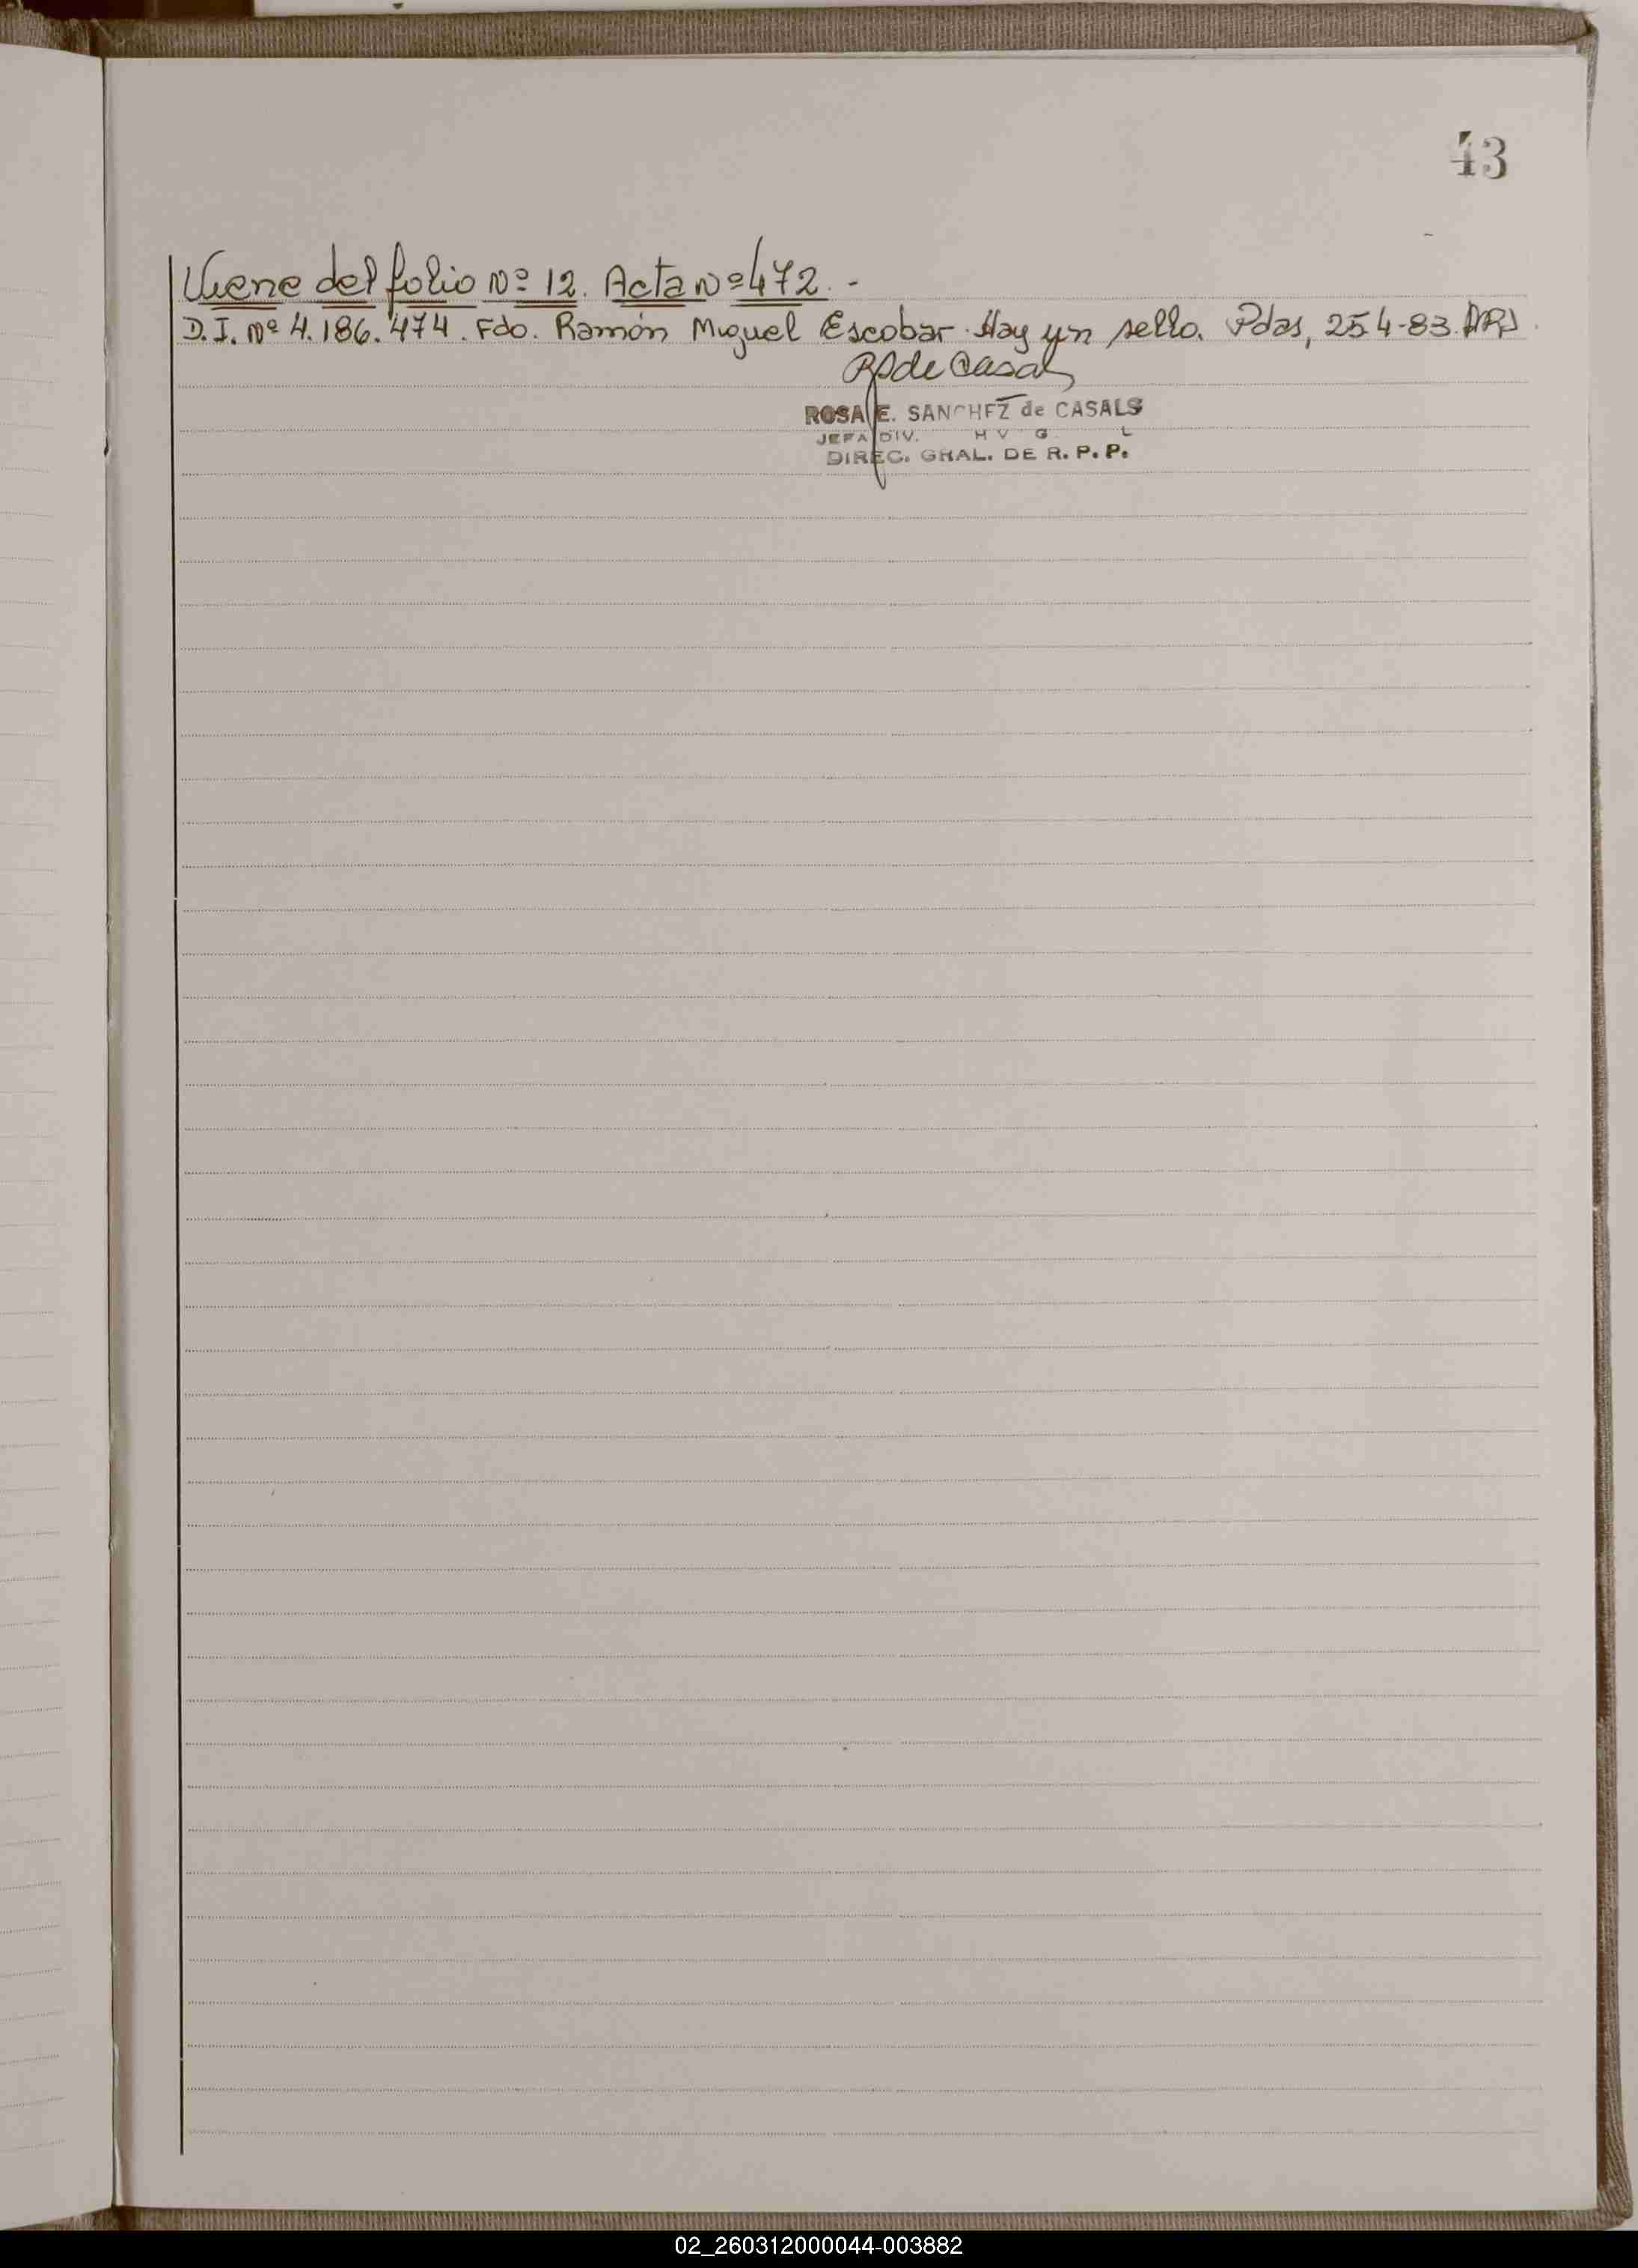 43
Viene del folio Nº 12. Acta Nº 472.-
D.I. Nº 4.186.474. Fdo. Ramón Miguel Escobar. Hay un sello. Pdas, 25-4-83.
RS de Casals
ROSA E. SANCHEZ de CASALS
JEFA DIV. H V G L
DIREC. GRAL. DE R. P. P.
02_260312000044-003882